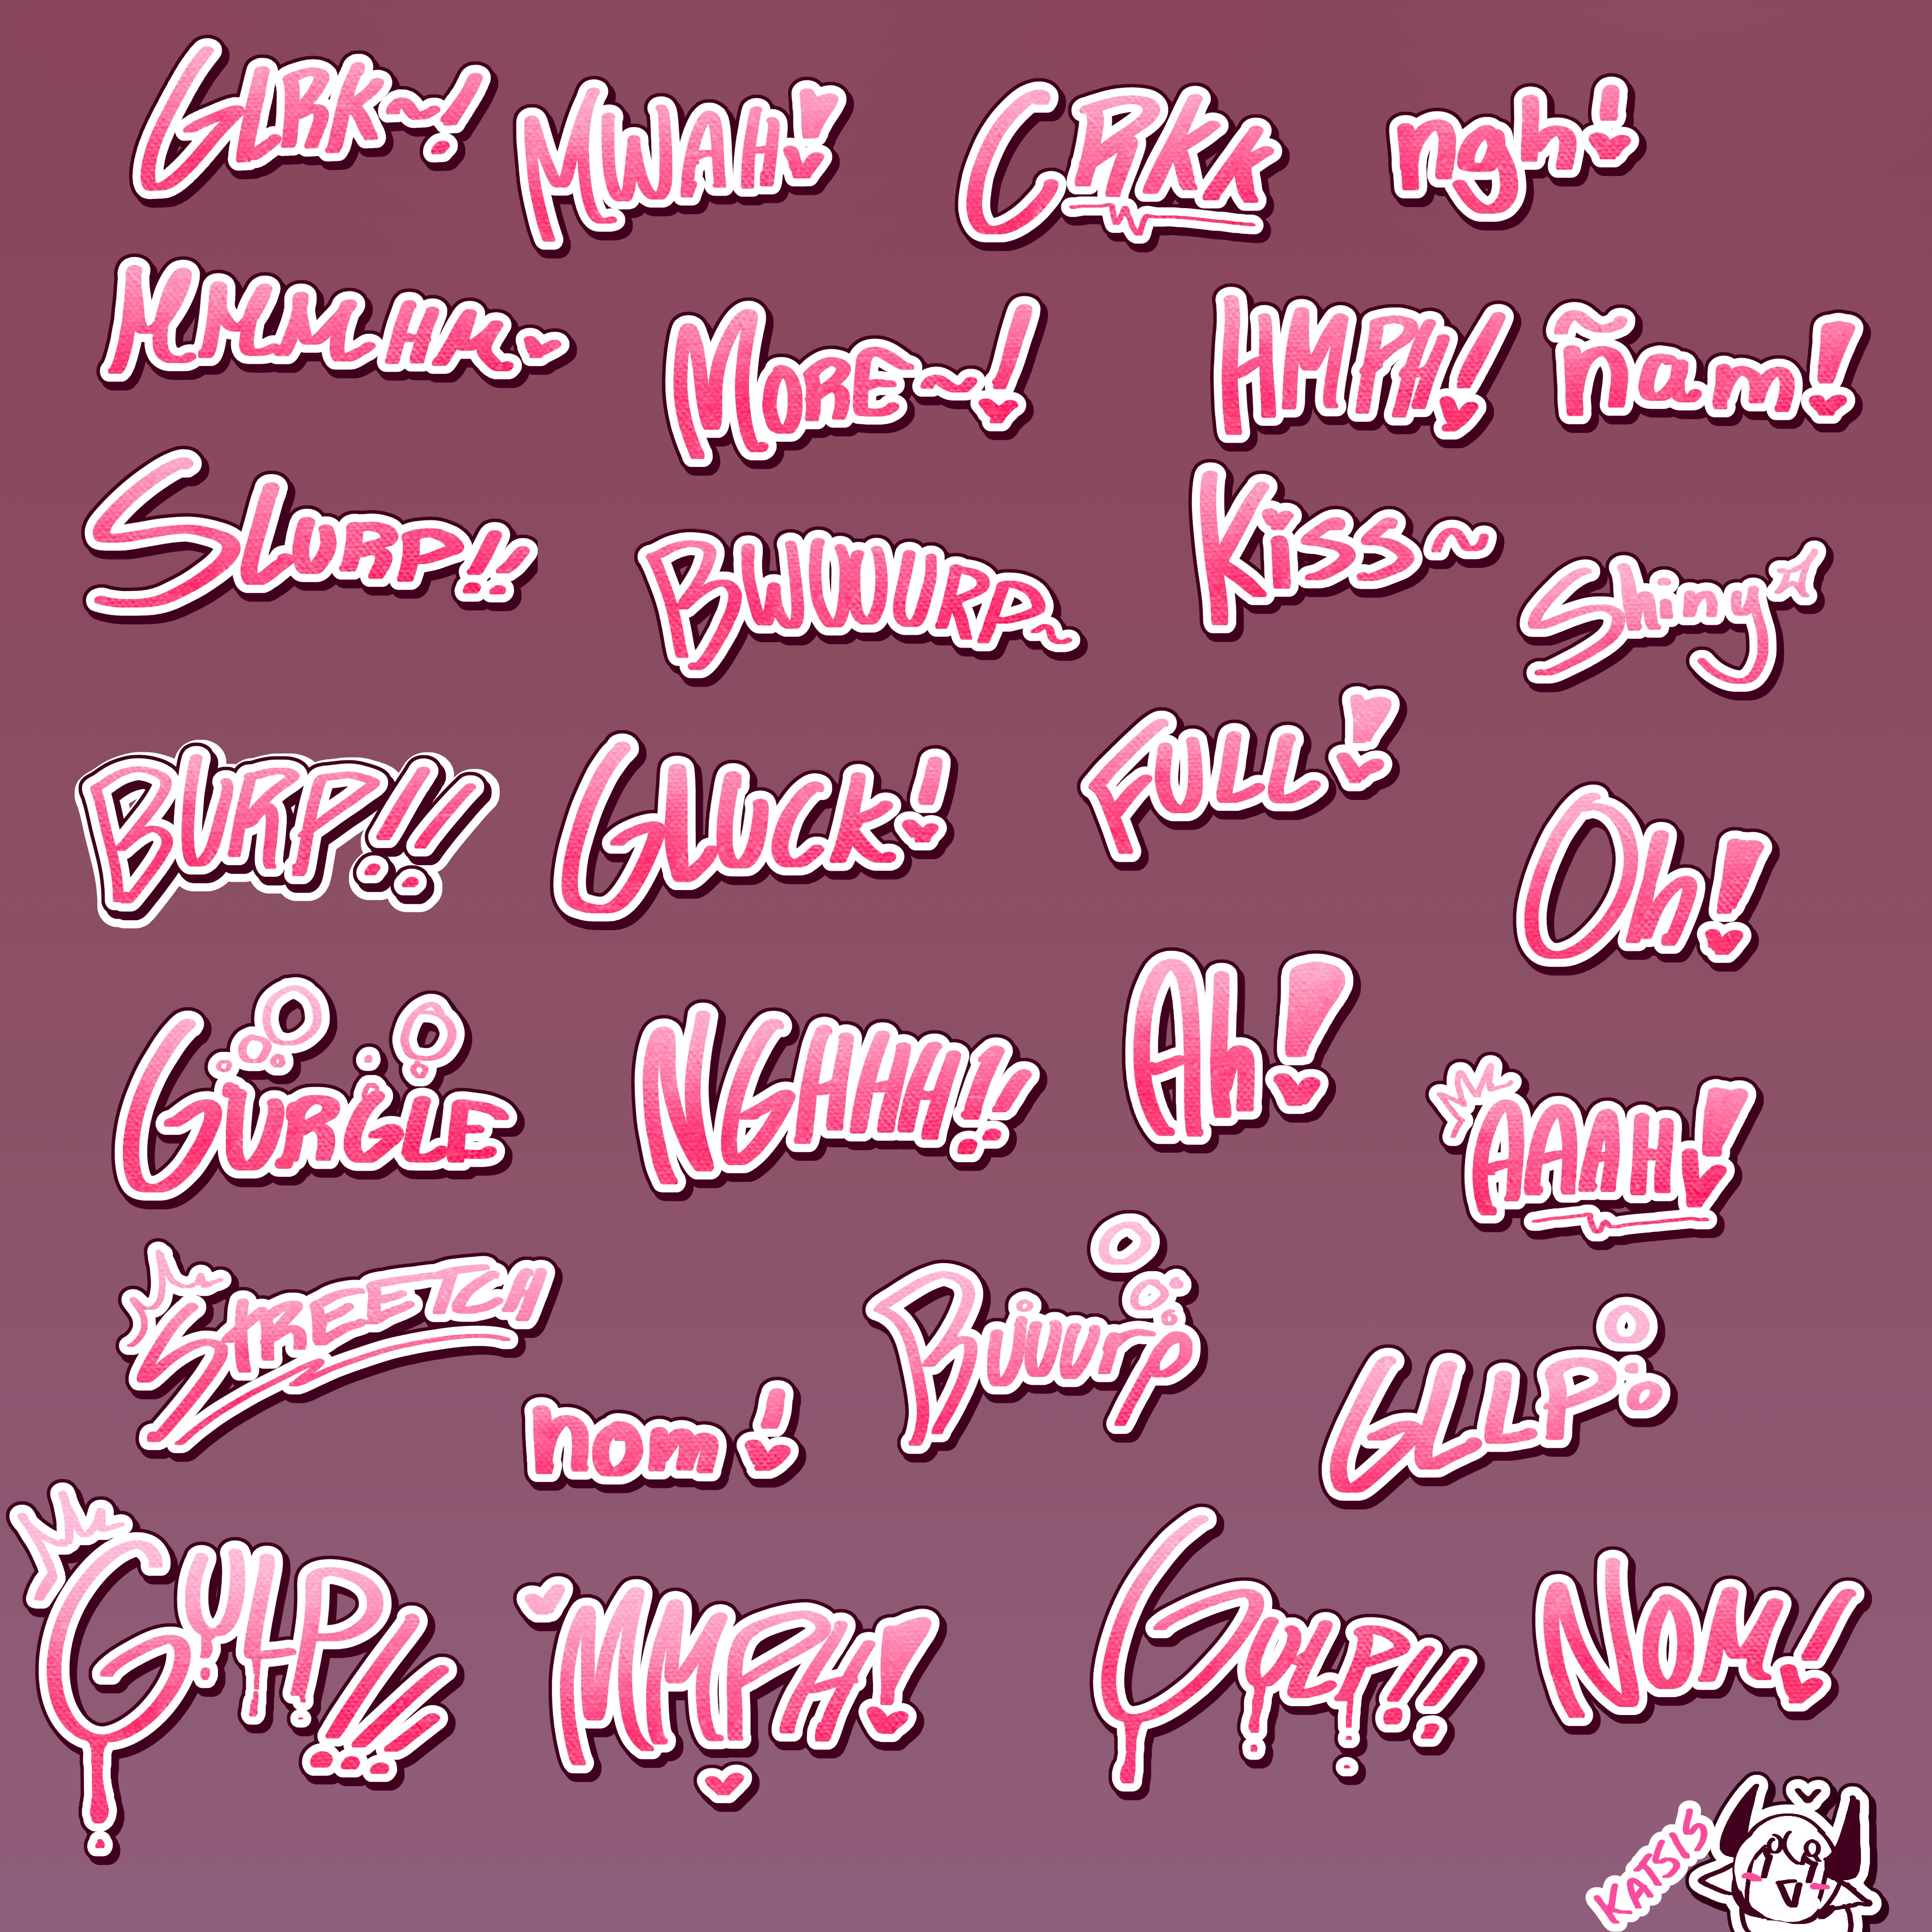 GLRK~!
MWAH!
CRKK
ngh!
MMMMHM
MORE~!
HMPH!
ñam!
SLURP!!
BWUUURP~
Kiss~
Shiny
BURP!!
GLUCK!
FULL!
Oh!
GURGLE
NGHHH!!
Ah!
AAAH!
STREETCH
nom!
Buuurp
GLLP
GULP!!!
MMPH!
GULP!!
NOM!
KATSIS